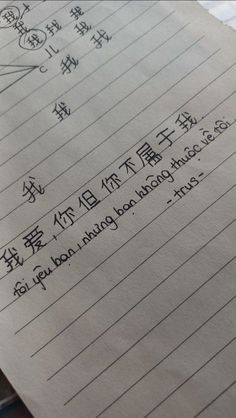 我 我
我 我 我
C 儿 我 我
我
我
我爱,你但你不属于我
tôi yêu bạn, nhưng bạn không thuộc về tôi
-trus-